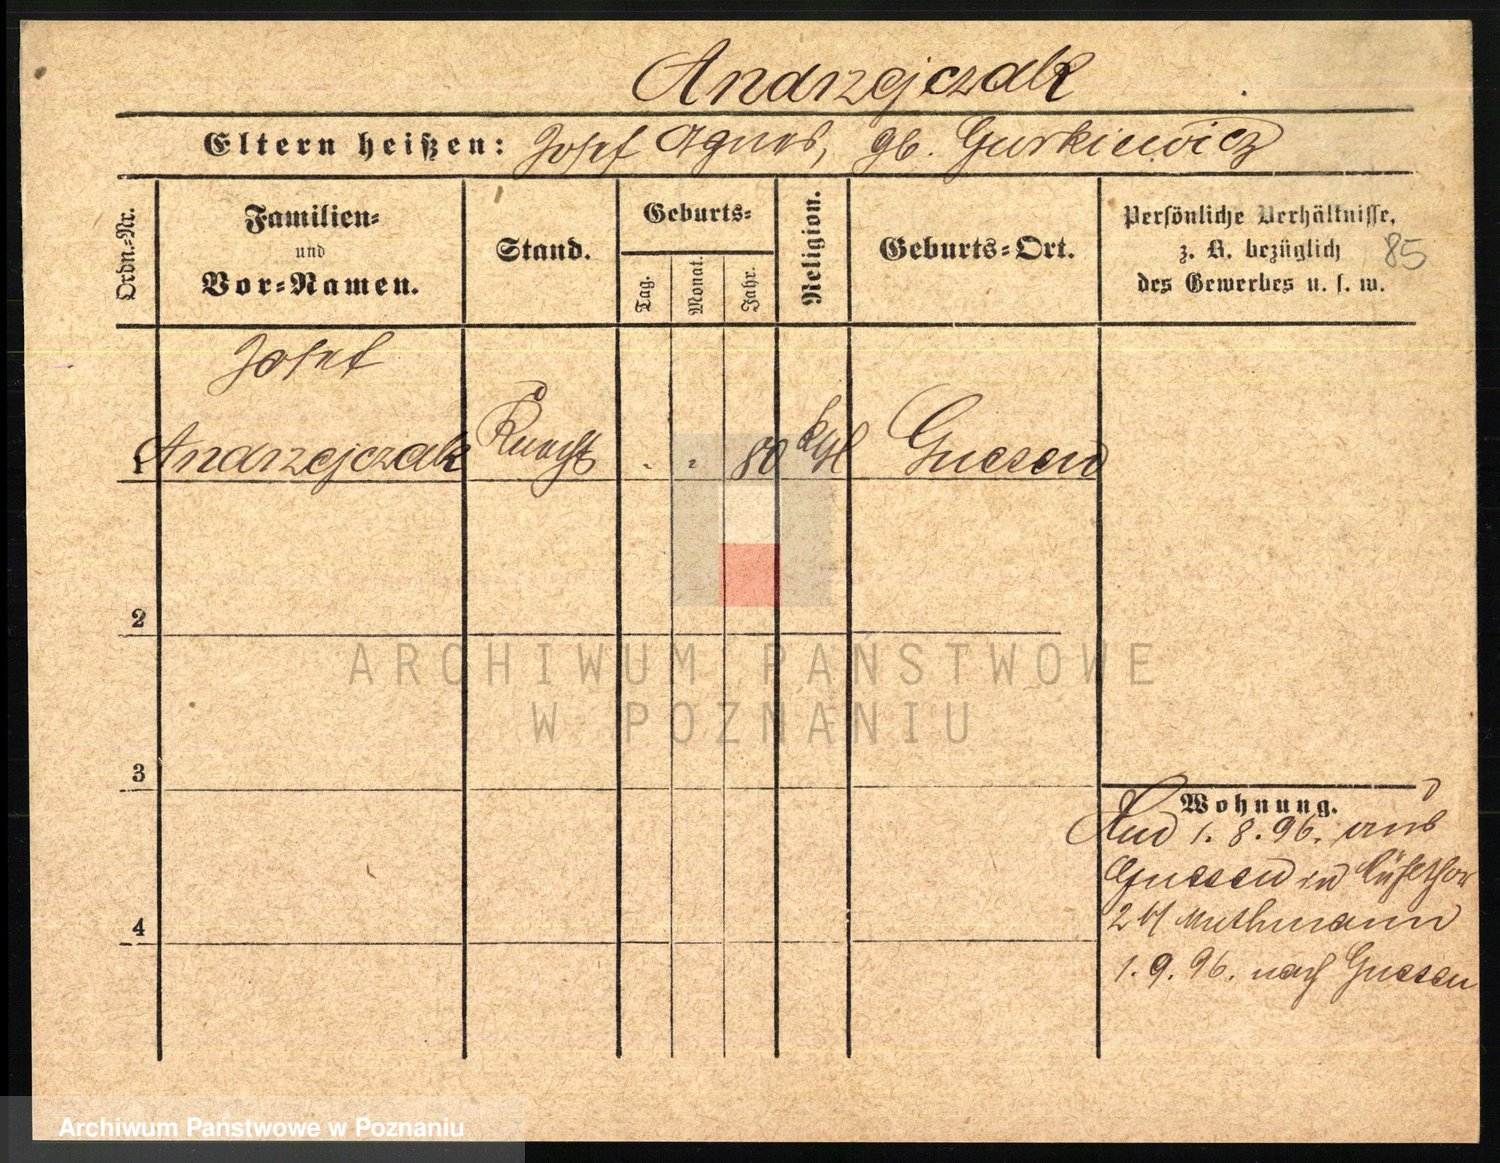 Andrzejczak
Eltern heißen: Josef Agnes, gb. Gurkiewicz
Ordn.-Nr.
Familien-
und
Vor-Namen.
Stand.
Geburts-
Tag.
Monat.
Jahr.
Religion.
Geburts-Ort.
Persönliche Verhältnisse,
z. B. bezüglich
des Gewerbes u. s. w.
85
Josef
1 Andrzejczak Knecht 80 kth Gnesen
2
3
4
Wohnung.
1.8.96. aus
Gnesen in
2 b/ Muthmann
1.9.96. nach Gnesen
ARCHIWUM PAŃSTWOWE
W POZNANIU
Archiwum Państwowe w Poznaniu